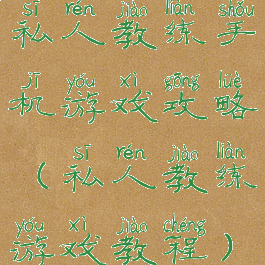 sī rén jiào liàn shǒu
私人教练手
jī yóu xì gōng lüè
机游戏攻略
sī rén jiào liàn
(私人教练
yóu xì jiào chéng
游戏教程)